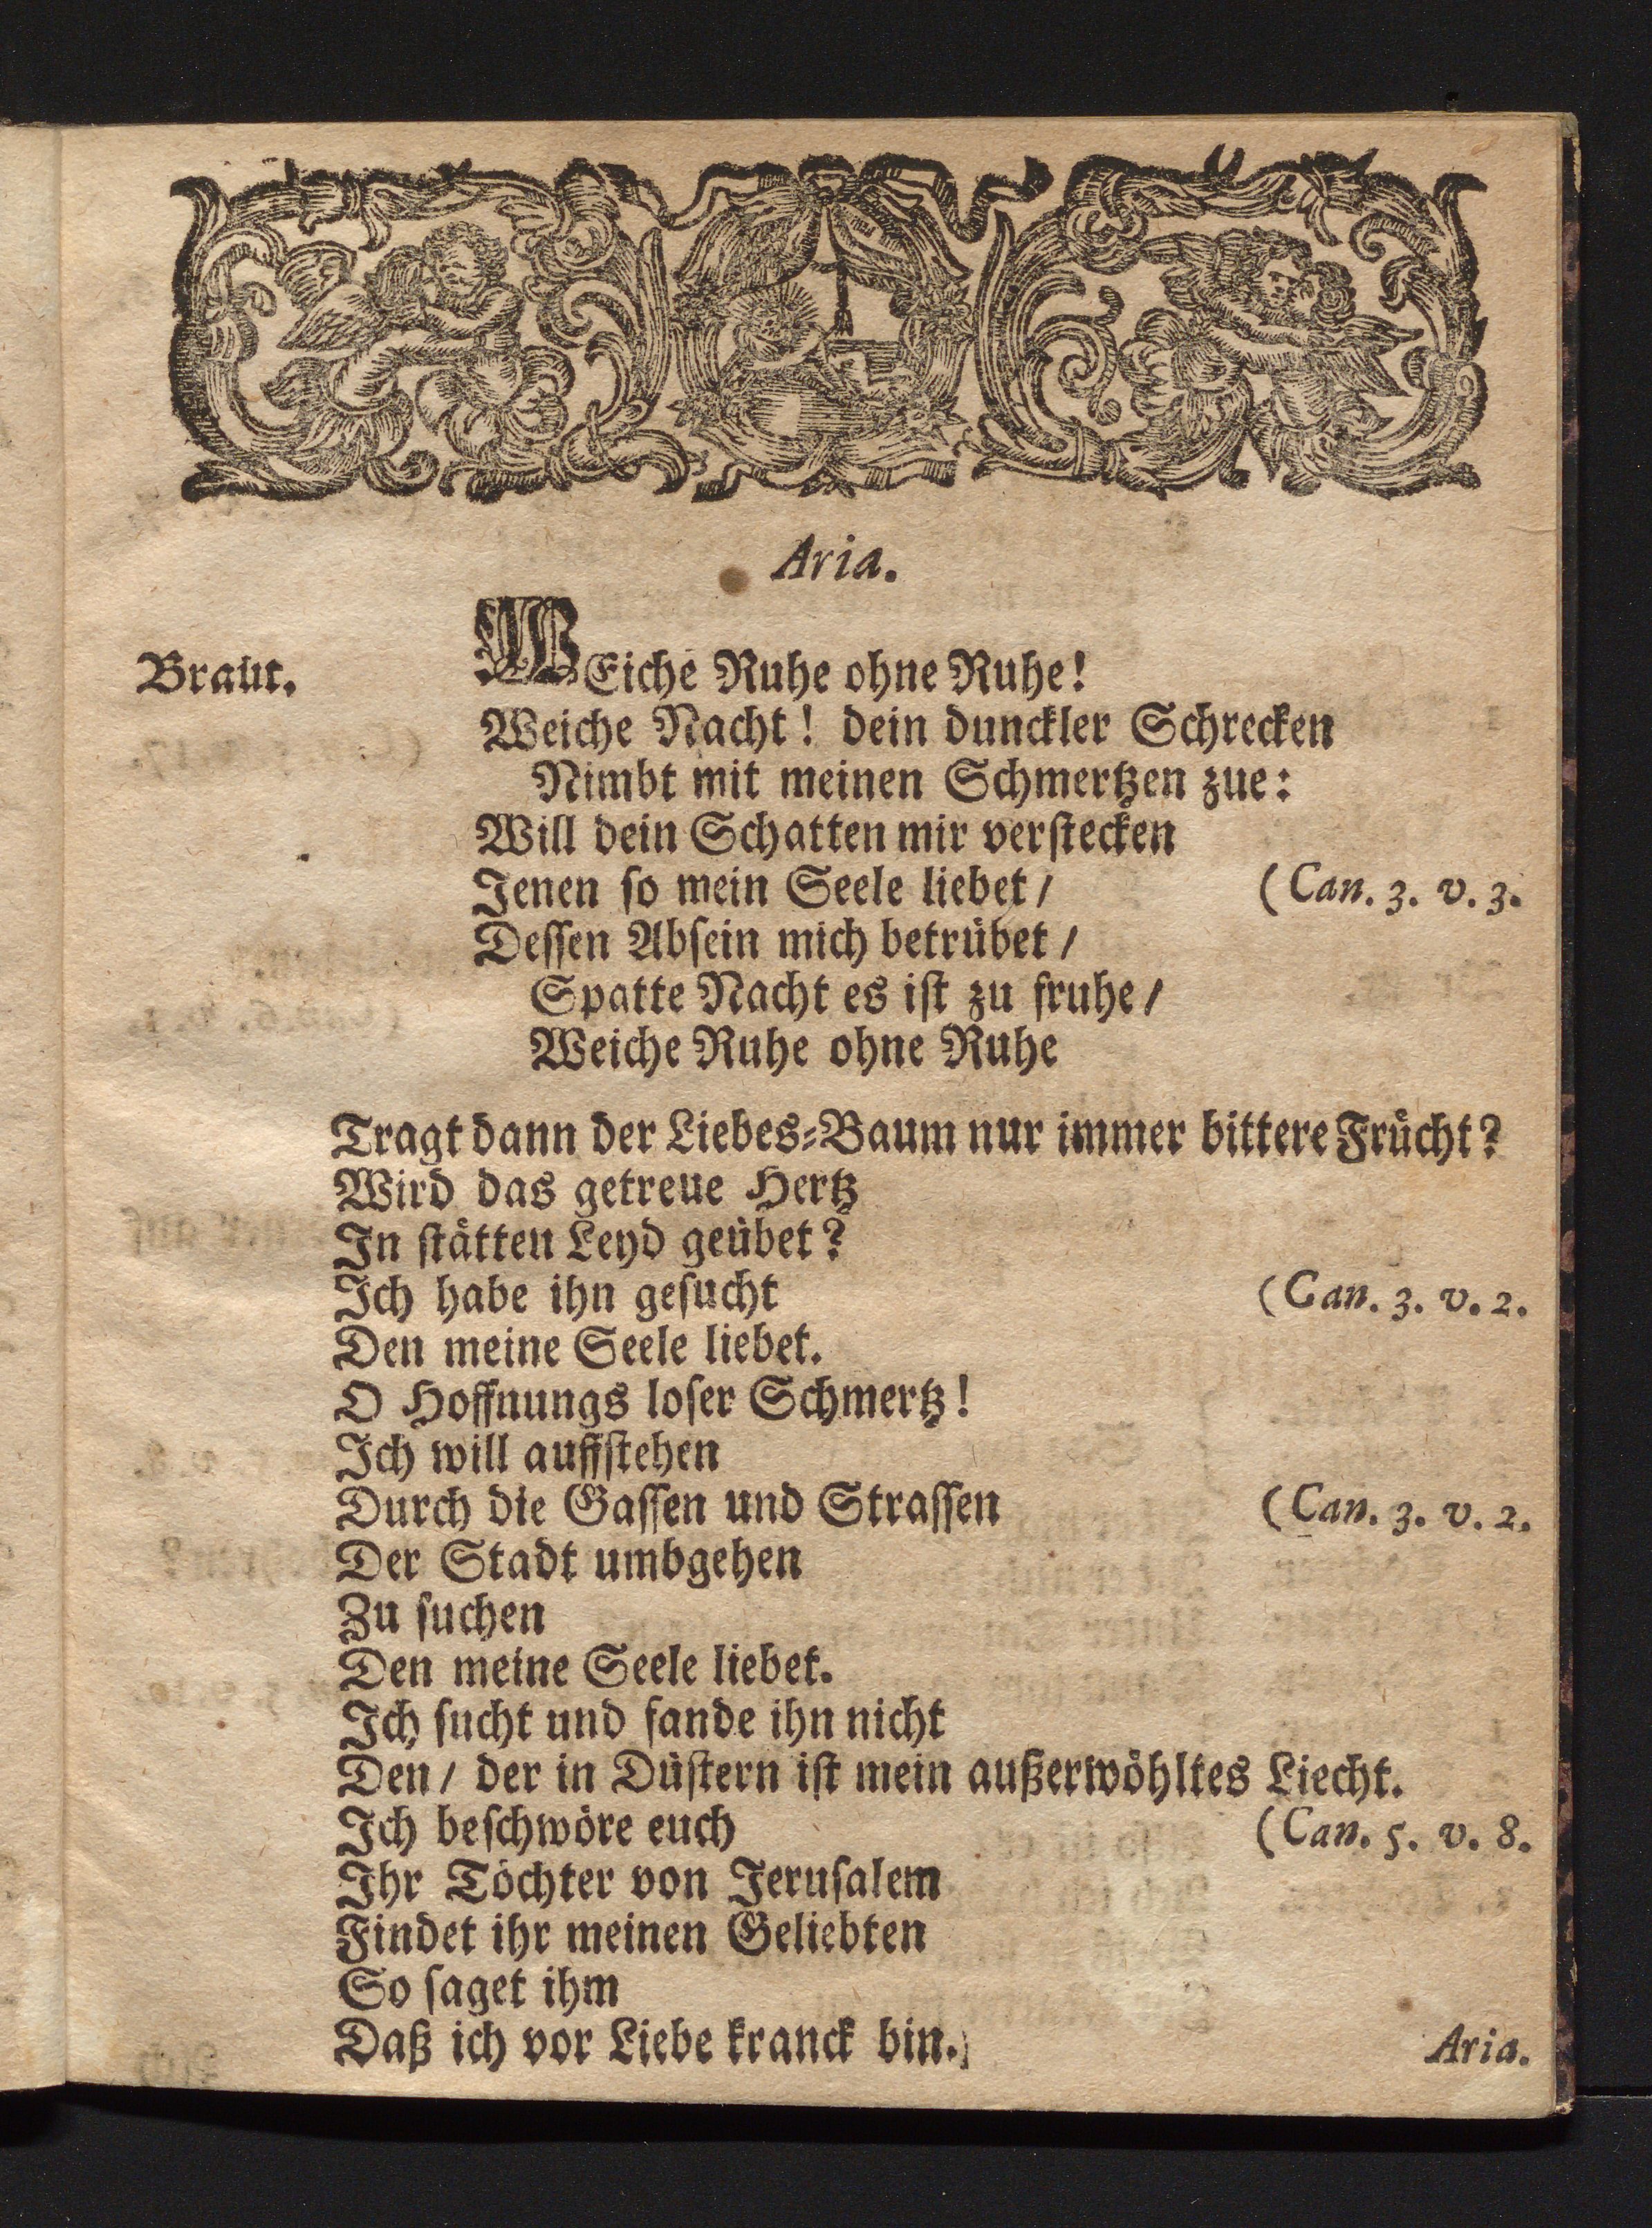 Aria.
Braut. WEiche Ruhe ohne Ruhe!
Weiche Nacht! dein dunckler Schrecken
Nimbt mit meinen Schmertzen zue:
Will dein Schatten mir verstecken
Jenen so mein Seele liebet / (Can. 3. v. 3.
Dessen Absein mich betrübet /
Spatte Nacht es ist zu fruhe /
Weiche Ruhe ohne Ruhe
Tragt dann der Liebes-Baum nur immer bittere Frücht?
Wird das getreue Hertz
In stätten Leyd geübet?
Ich habe ihn gesucht (Can. 3. v. 2.
Den meine Seele liebet.
O Hoffnungs loser Schmertz!
Ich will auffstehen
Durch die Gassen und Strassen (Can. 3. v. 2.
Der Stadt umbgehen
Zu suchen
Den meine Seele liebet.
Ich sucht und fande ihn nicht
Den / der in Düstern ist mein außerwöhltes Liecht.
Ich beschwöre euch (Can. 5. v. 8.
Ihr Töchter von Jerusalem
Findet ihr meinen Geliebten
So saget ihm
Daß ich vor Liebe kranck bin. Aria.